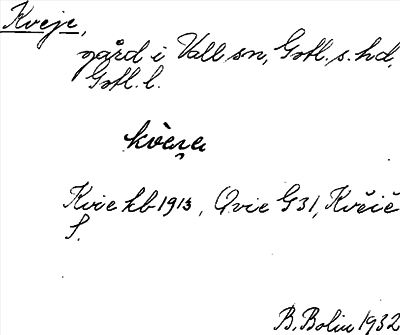 Kveje,
gård i Vall sn, Gotl. s. hd,
Gotl. l.
Kvie kb 1913, Qvie G31, Kvĕiĕ
S.
B. Bolin 1932